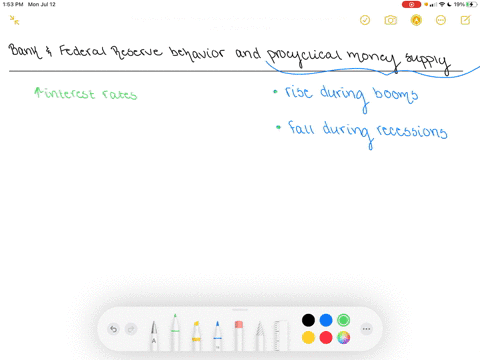 1:53 PM Mon Jul 12
19%
Bank & Federal Reserve behavior and procyclical money supply
↑interest rates
• rise during booms
• fall during recessions
A